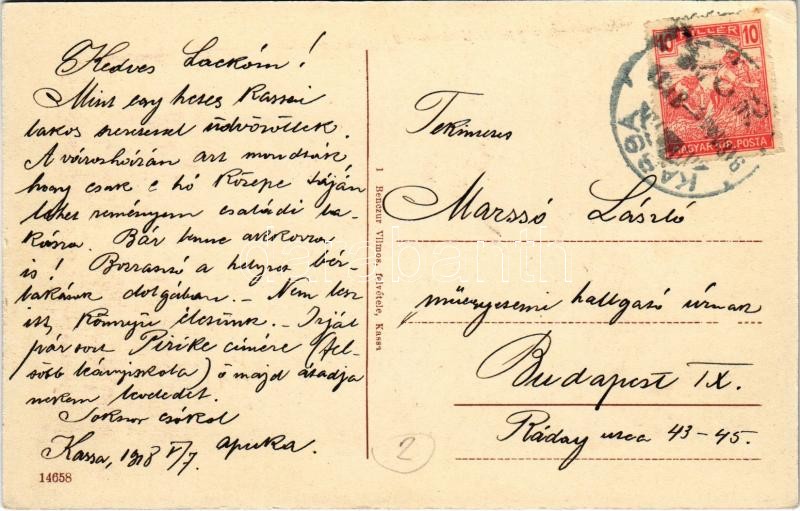 Kedves Lackóm!
Mint egy hetes Kassai
lakos szeressel üdvözöllek.
A városházán azt mondták
hogy csak e hó közepe táján
lehet reményem családi la-
kásra. Bár lenne akkorra
is! Borzasztó a helyzet bér-
lakások dolgában. – Nem lesz
itt könnyű életünk. – Irjál
pár sort Pirike címére (fel-
sőbb leányiskola) ő majd átadja
nekem leveledet.
Sokszor csókol
apuka.
Kassa, 1918 V/7.
14658
1 Benczur Vilmos, felvétele, Kassa
10 FILLÉR 10
MAGYAR KIR. POSTA
KASSA
Tekintetes
Marssó László
műegyetemi hallgató úrnak
Budapest IX.
Ráday utca 43-45.
2